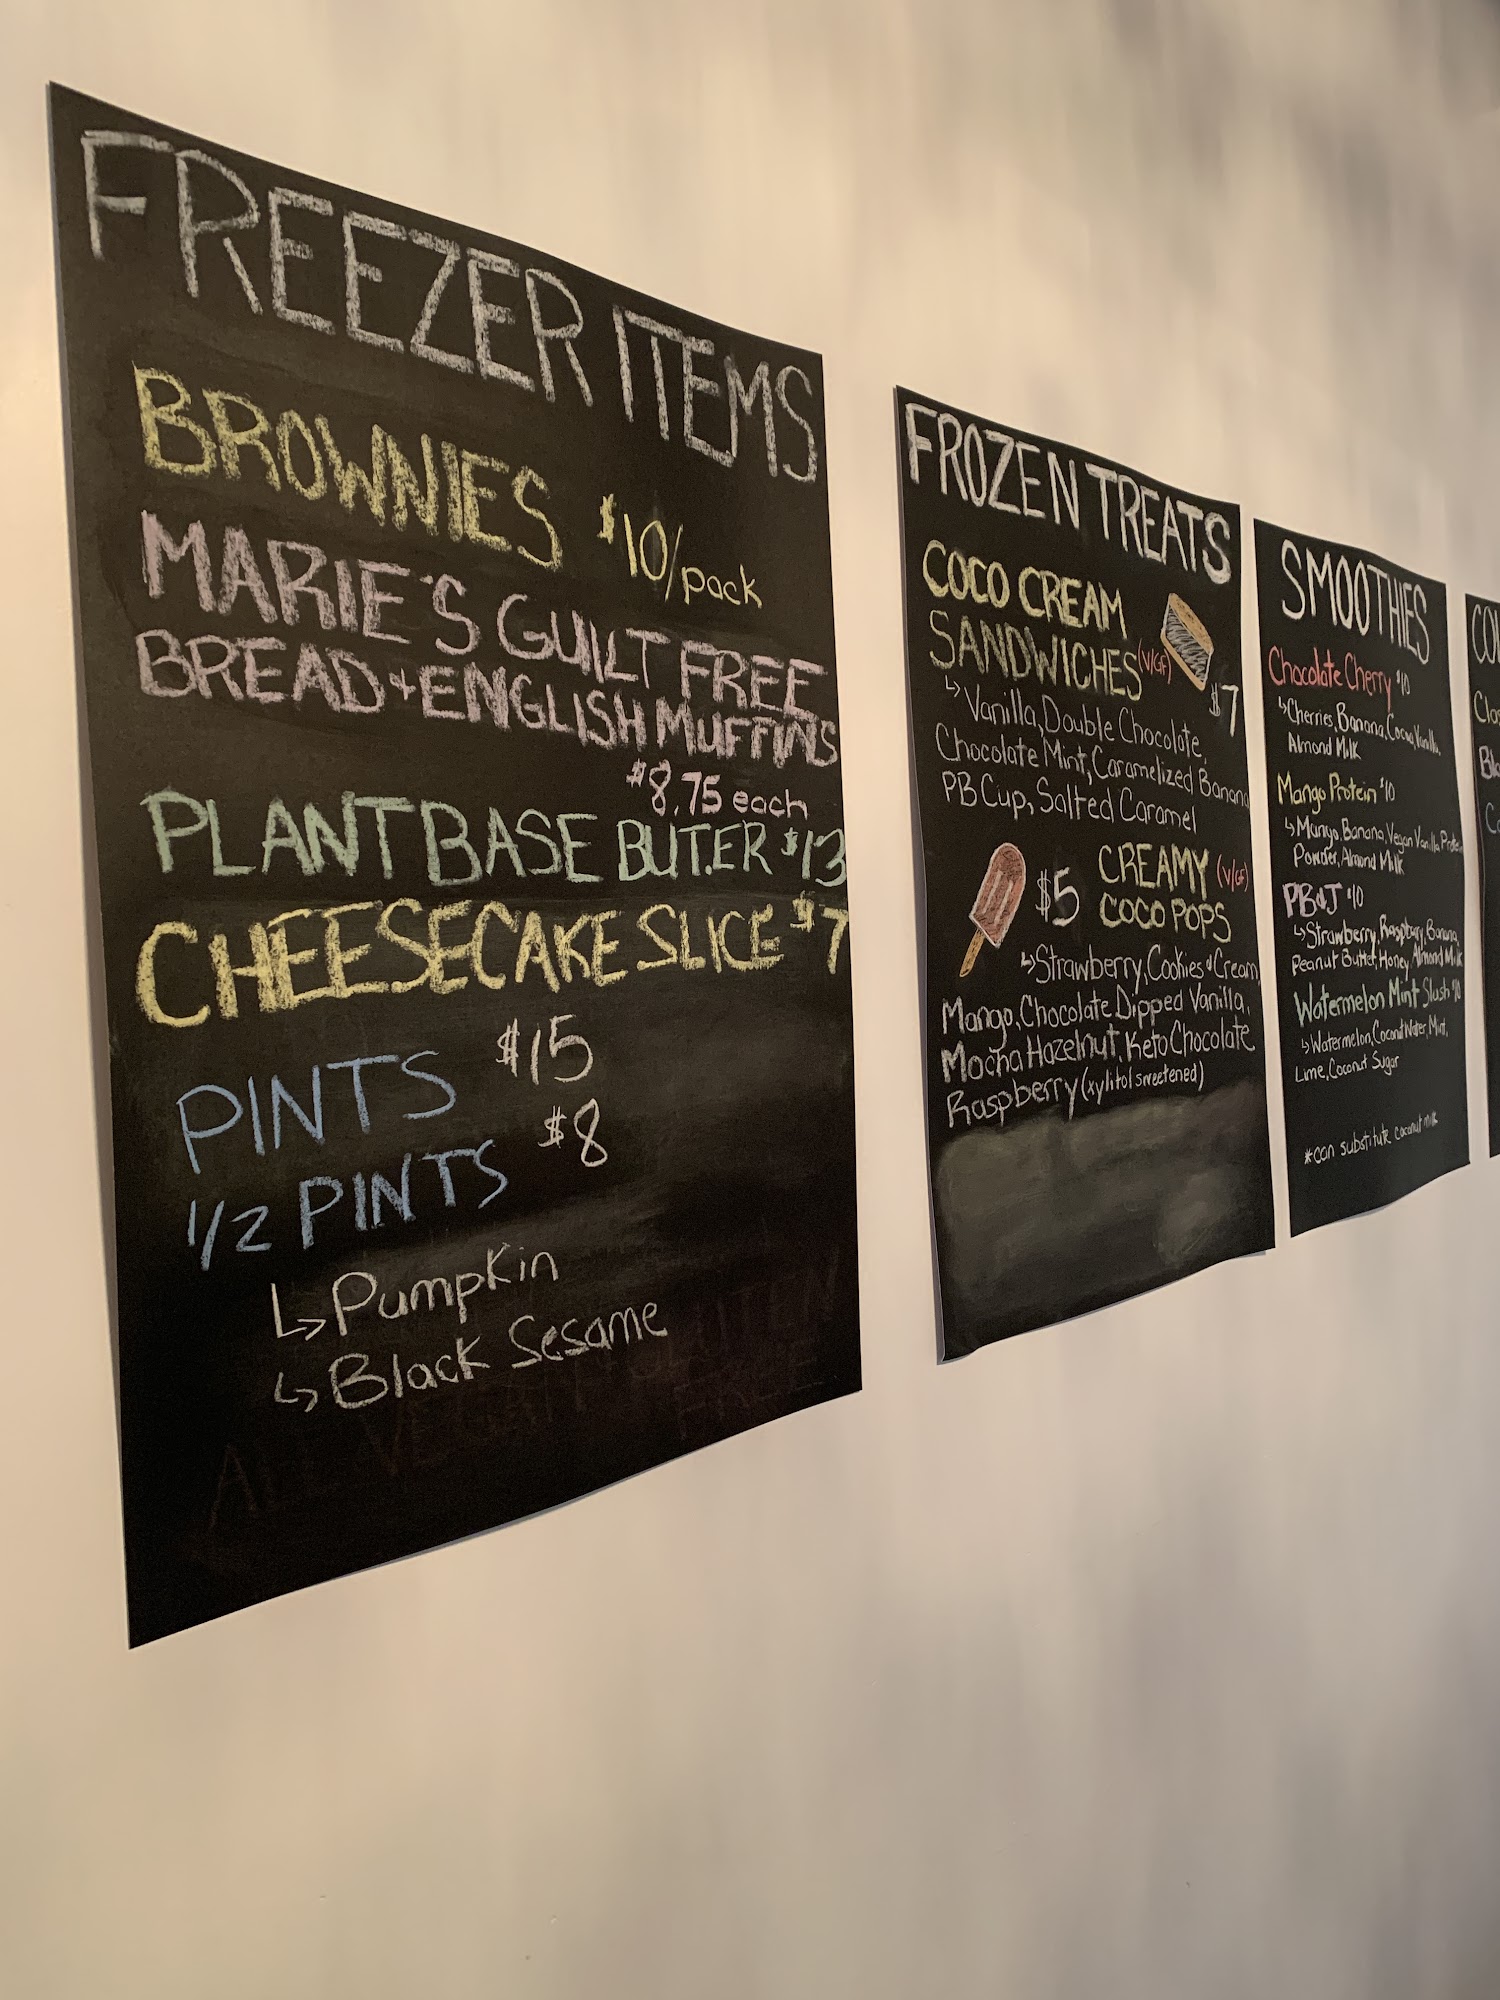 FREEZER ITEMS
BROWNIES $10/pack
MARIE'S GUILT FREE
BREAD + ENGLISH MUFFINS
$8.75 each
PLANT BASE BUTTER $13
CHEESECAKE SLICE $7
PINTS $15
1/2 PINTS $8
↳ Pumpkin
↳ Black Sesame
ALL VEGAN + GLUTEN
FREE
FROZEN TREATS
COCO CREAM
SANDWICHES (V/GF) $7
↳ Vanilla, Double Chocolate,
Chocolate Mint, Caramelized Banana
PB Cup, Salted Caramel
$5 CREAMY (V/GF)
COCO POPS
↳ Strawberry, Cookies & Cream,
Mango, Chocolate Dipped Vanilla,
Mocha Hazelnut, Keto Chocolate
Raspberry (xylitol sweetened)
SMOOTHIES
Chocolate Cherry $10
↳ Cherries, Banana, Cocoa, Vanilla,
Almond Milk
Mango Protein $10
↳ Mango, Banana, Vegan Vanilla Protein
Powder, Almond Milk
PB&J $10
↳ Strawberry, Raspberry, Banana,
Peanut Butter, Honey, Almond Milk
Watermelon Mint Slush $10
↳ Watermelon, Coconut Water, Mint,
Lime, Coconut Sugar
*can substitute coconut milk